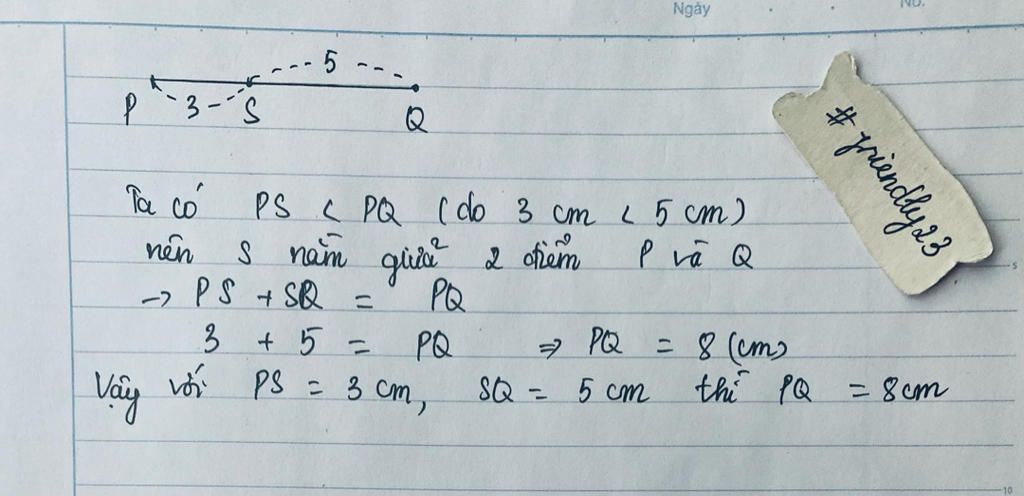 Ngày
No.
5
P 3 S Q
Ta có PS < PQ (do 3 cm < 5 cm)
nên S nằm giữa 2 điểm P và Q
→ PS + SQ = PQ
3 + 5 = PQ ⇒ PQ = 8 (cm)
Vậy với PS = 3 cm, SQ = 5 cm thì PQ = 8cm
#friendly23
5
10